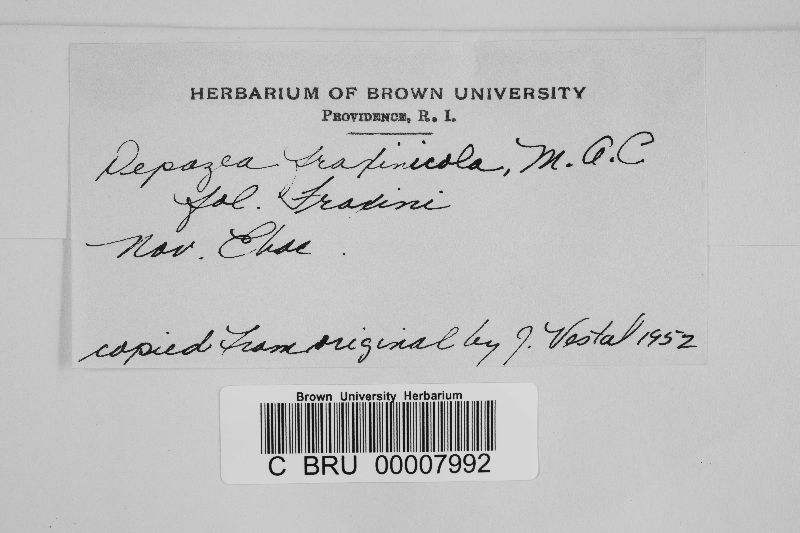 HERBARIUM OF BROWN UNIVERSITY
PROVIDENCE, R. I.
Depazea fraxinicola, M.A.C
fol. Fraxini
Nov. Ebor.
copied from original by J. Vestal 1952
Brown University Herbarium
C BRU 00007992